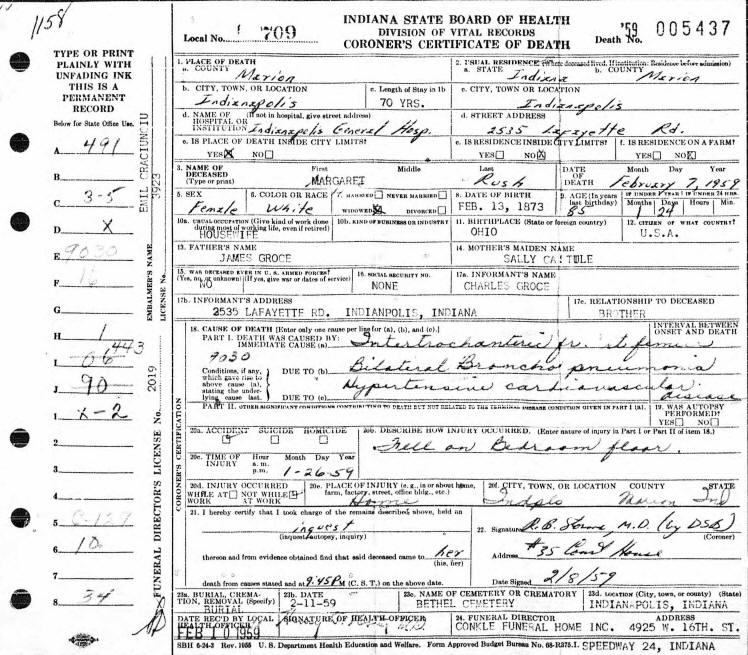 1158
INDIANA STATE BOARD OF HEALTH
DIVISION OF VITAL RECORDS
CORONER'S CERTIFICATE OF DEATH
Local No. 709
Death No. '59 005437
TYPE OR PRINT
PLAINLY WITH
UNFADING INK
THIS IS A
PERMANENT
RECORD
Below for State Office Use.
A 491
B
C 3-5
D X
E 9030
F 16
G
H 1
I 443
J 90
1 X-2
2
3
4
5
6 10
7
8 34
EMIL CRACIUNCIU
3923
EMBALMER'S NAME
LICENSE No.
FUNERAL DIRECTOR'S LICENSE No. 2019
CORONER'S CERTIFICATION
1. PLACE OF DEATH
a. COUNTY Marion
2. USUAL RESIDENCE (Where deceased lived. If institution: Residence before admission)
a. STATE Indiana b. COUNTY Marion
b. CITY, TOWN, OR LOCATION Indianapolis
c. Length of Stay in 1b 70 YRS.
c. CITY, TOWN, OR LOCATION Indianapolis
d. NAME OF HOSPITAL OR INSTITUTION (If not in hospital, give street address) Indianapolis General Hosp.
d. STREET ADDRESS 2535 Lafayette Rd.
e. IS PLACE OF DEATH INSIDE CITY LIMITS? YES X NO
e. IS RESIDENCE INSIDE CITY LIMITS? YES NO X
f. IS RESIDENCE ON A FARM? YES NO X
3. NAME OF DECEASED (Type or print) First Middle Last
MARGARET Rush
DATE OF DEATH Month Day Year
February 7, 1959
5. SEX Female
6. COLOR OR RACE White
7. MARRIED NEVER MARRIED
WIDOWED X DIVORCED
8. DATE OF BIRTH FEB. 13, 1873
9. AGE (In years last birthday) 85
IF UNDER 1 YEAR IF UNDER 24 HRS.
Months Days Hours Min.
1 24
10a. USUAL OCCUPATION (Give kind of work done during most of working life, even if retired) HOUSEWIFE
10b. KIND OF BUSINESS OR INDUSTRY
11. BIRTHPLACE (State or foreign country) OHIO
12. CITIZEN OF WHAT COUNTRY? U.S.A.
13. FATHER'S NAME JAMES GROCE
14. MOTHER'S MAIDEN NAME SALLY
15. WAS DECEASED EVER IN U. S. ARMED FORCES? (Yes, no, or unknown) (If yes, give war or dates of service) NO
16. SOCIAL SECURITY NO. NONE
17a. INFORMANT'S NAME CHARLES GROCE
17b. INFORMANT'S ADDRESS 2535 LAFAYETTE RD. INDIANPOLIS, INDIANA
17c. RELATIONSHIP TO DECEASED BROTHER
18. CAUSE OF DEATH [Enter only one cause per line for (a), (b), and (c).]
INTERVAL BETWEEN ONSET AND DEATH
PART I. DEATH WAS CAUSED BY:
IMMEDIATE CAUSE (a) Intertrochanteric fr. lt femur
9030
Conditions, if any, which gave rise to above cause (a), stating the underlying cause last.
DUE TO (b) Bilateral Broncho pneumonia
DUE TO (c) Hypertensive cardiovascular disease
PART II. OTHER SIGNIFICANT CONDITIONS CONTRIBUTING TO DEATH BUT NOT RELATED TO THE TERMINAL DISEASE CONDITION GIVEN IN PART I (a).
19. WAS AUTOPSY PERFORMED?
YES NO
20a. ACCIDENT SUICIDE HOMICIDE
20b. DESCRIBE HOW INJURY OCCURRED. (Enter nature of injury in Part I or Part II of item 18.)
Fell on Bedroom floor.
20c. TIME OF INJURY Hour a.m. p.m. Month Day Year
1-26-59
20d. INJURY OCCURRED
WHILE AT WORK NOT WHILE AT WORK
20e. PLACE OF INJURY (e. g., in or about home, farm, factory, street, office bldg., etc.) Home
20f. CITY, TOWN, OR LOCATION COUNTY STATE
Indpls Marion Ind
21. I hereby certify that I took charge of the remains described above, held an
inquest
(inquest, autopsy, inquiry)
thereon and from evidence obtained find that said deceased came to her
(his, her)
death from causes stated and at 9:45P M (C. S. T.) on the above date.
22. Signature M.D. (by DSB)
(Coroner)
Address #35 Court House
Date Signed 2/8/59
23a. BURIAL, CREMATION, REMOVAL (Specify) BURIAL
23b. DATE 2-11-59
23c. NAME OF CEMETERY OR CREMATORY BETHEL CEMETERY
23d. LOCATION (City, town, or county) (State) INDIANAPOLIS, INDIANA
DATE REC'D BY LOCAL HEALTH OFFICER FEB 10 1959
SIGNATURE OF HEALTH OFFICER
24. FUNERAL DIRECTOR ADDRESS
CONKLE FUNERAL HOME INC. 4925 W. 16TH. ST.
SPEEDWAY 24, INDIANA
SBH 6-24-3 Rev. 1955 U. S. Department Health Education and Welfare. Form Approved Budget Bureau No. 68-R375.1.